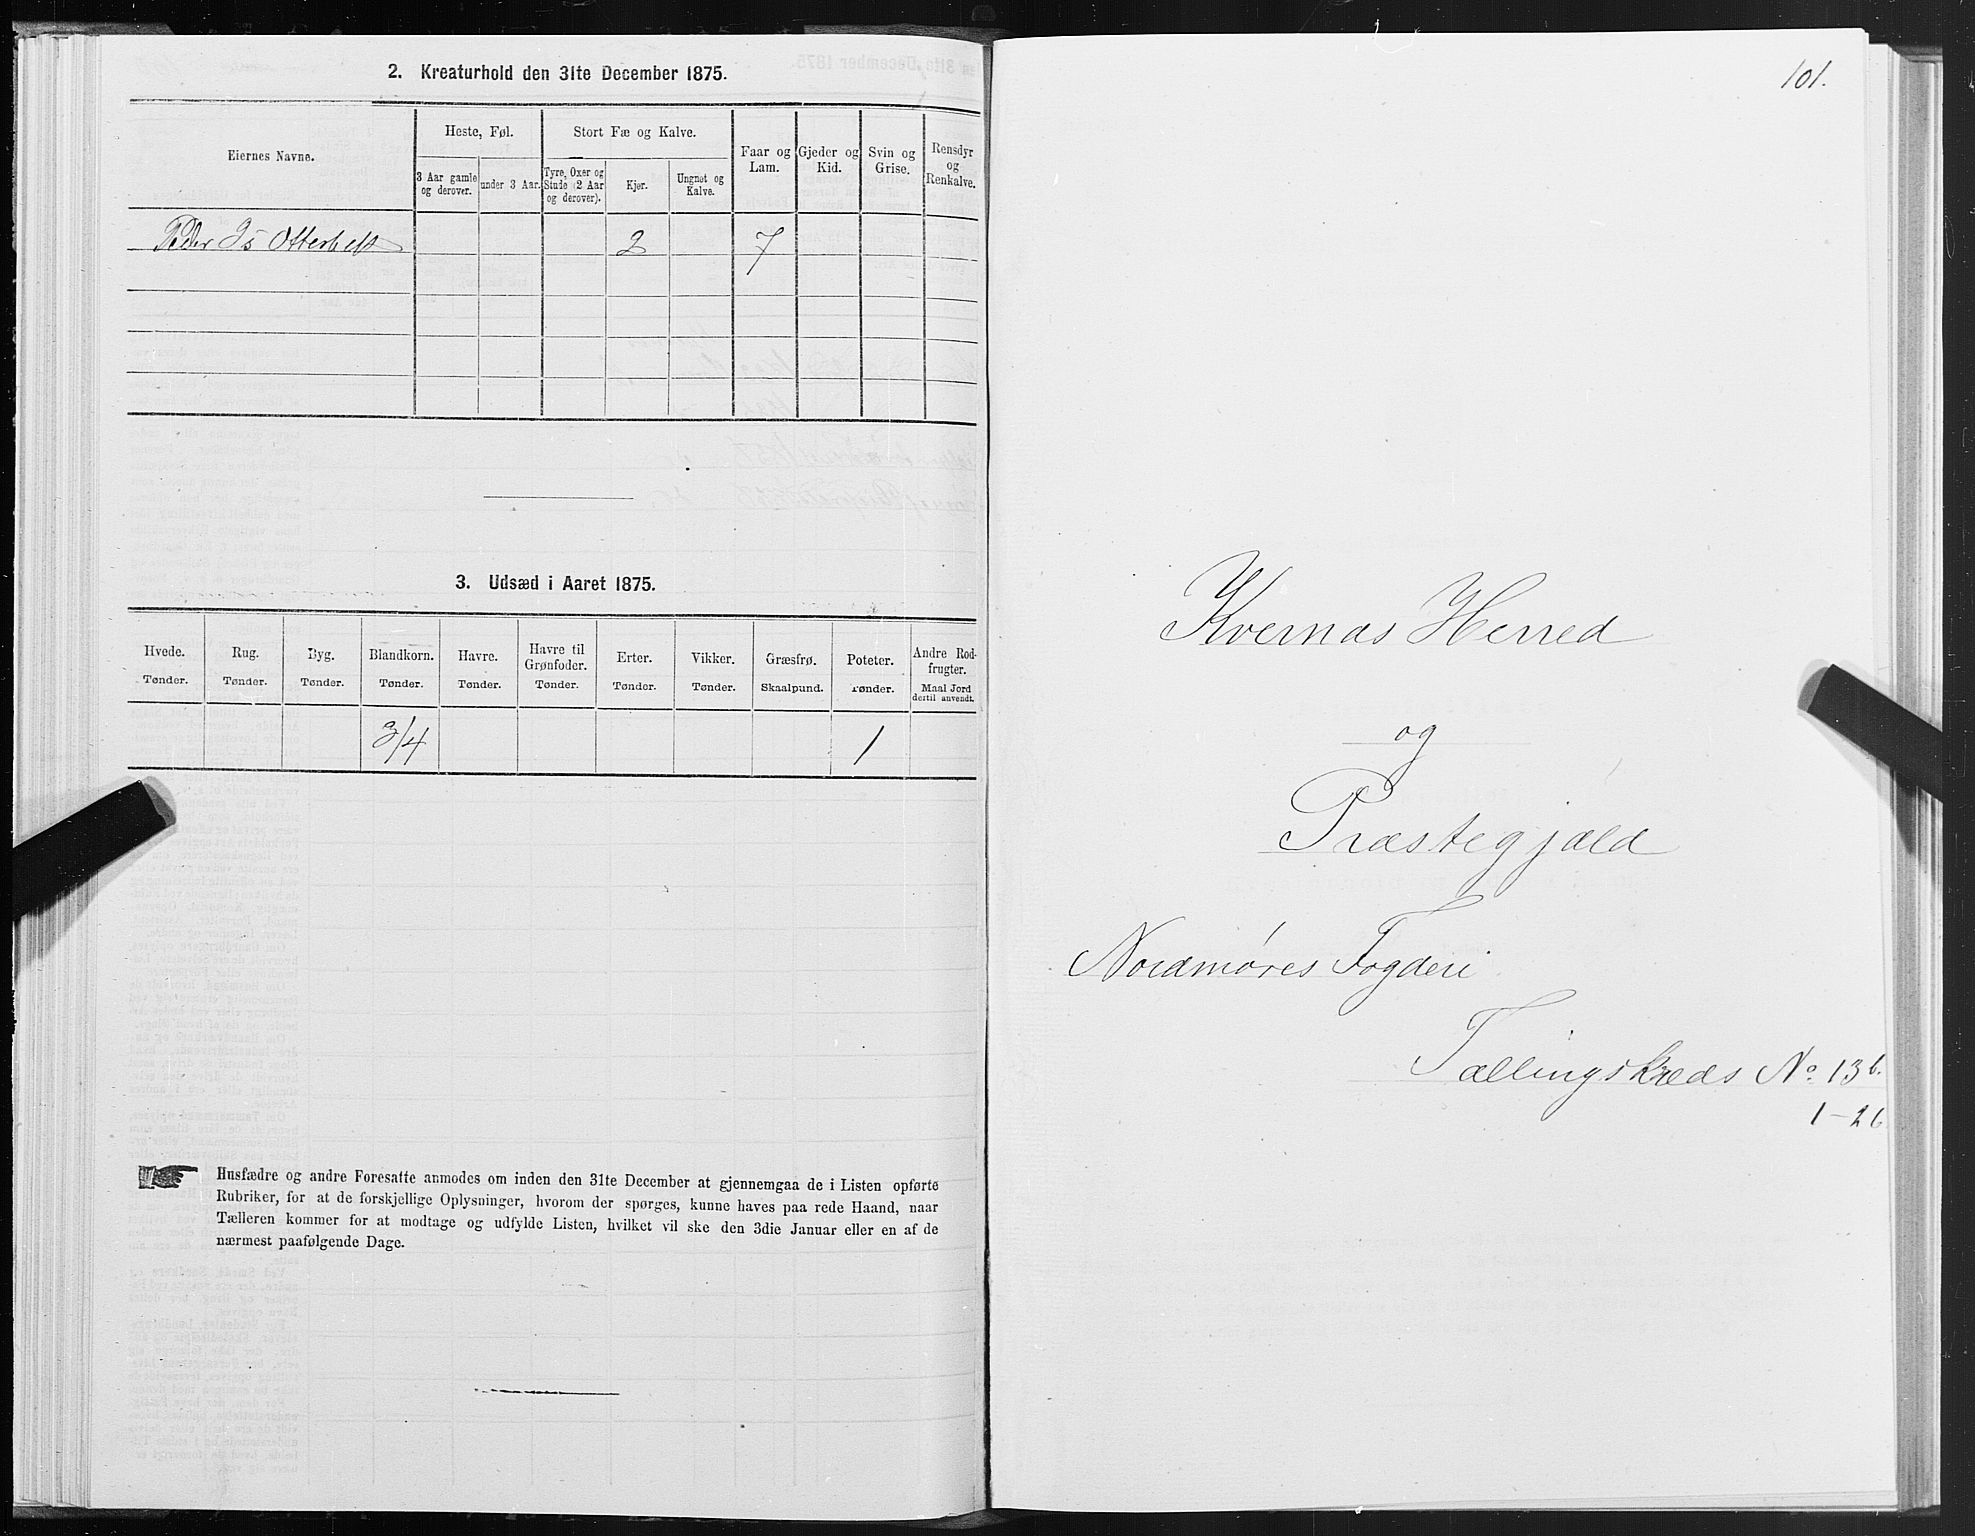 2. Kreaturhold den 31te December 1875.
Eiernes Navne.
Heste, Føl.
Stort Fæ og Kalve.
Faar og
Lam.
Gjeder og
Kid.
Svin og
Grise.
Rensdyr
og
Renkalve.
3 Aar gamle
og derover.
under 3 Aar.
Tyre, Oxer og
Stude (2 Aar
og derover).
Kjør.
Ungnøt og
Kalve.
Peder 2 7
3. Udsæd i Aaret 1875.
Hvede.
Tønder.
Rug.
Tønder.
Byg.
Tønder.
Blandkorn.
Tønder.
Havre.
Tønder.
Havre til
Grønfoder.
Tønder.
Erter.
Tønder.
Vikker.
Tønder.
Græsfrø.
Skaalpund.
Poteter.
Tønder.
Andre Rod-
frugter.
Maal Jord
dertil anvendt.
3/4 1
Husfædre og andre Foresatte anmodes om inden den 31te December at gjennemgaa de i Listen opførte
Rubriker, for at de forskjellige Oplysninger, hvorom der spørges, kunne haves paa rede Haand, naar
Tælleren kommer for at modtage og udfylde Listen, hvilket vil ske den 3die Januar eller en af de
nærmest paafølgende Dage.
101.
Kvernæs Herred
og
Præstegjæld
Nordmøres Fogderi
Tællingskreds No. 13b.
1-26